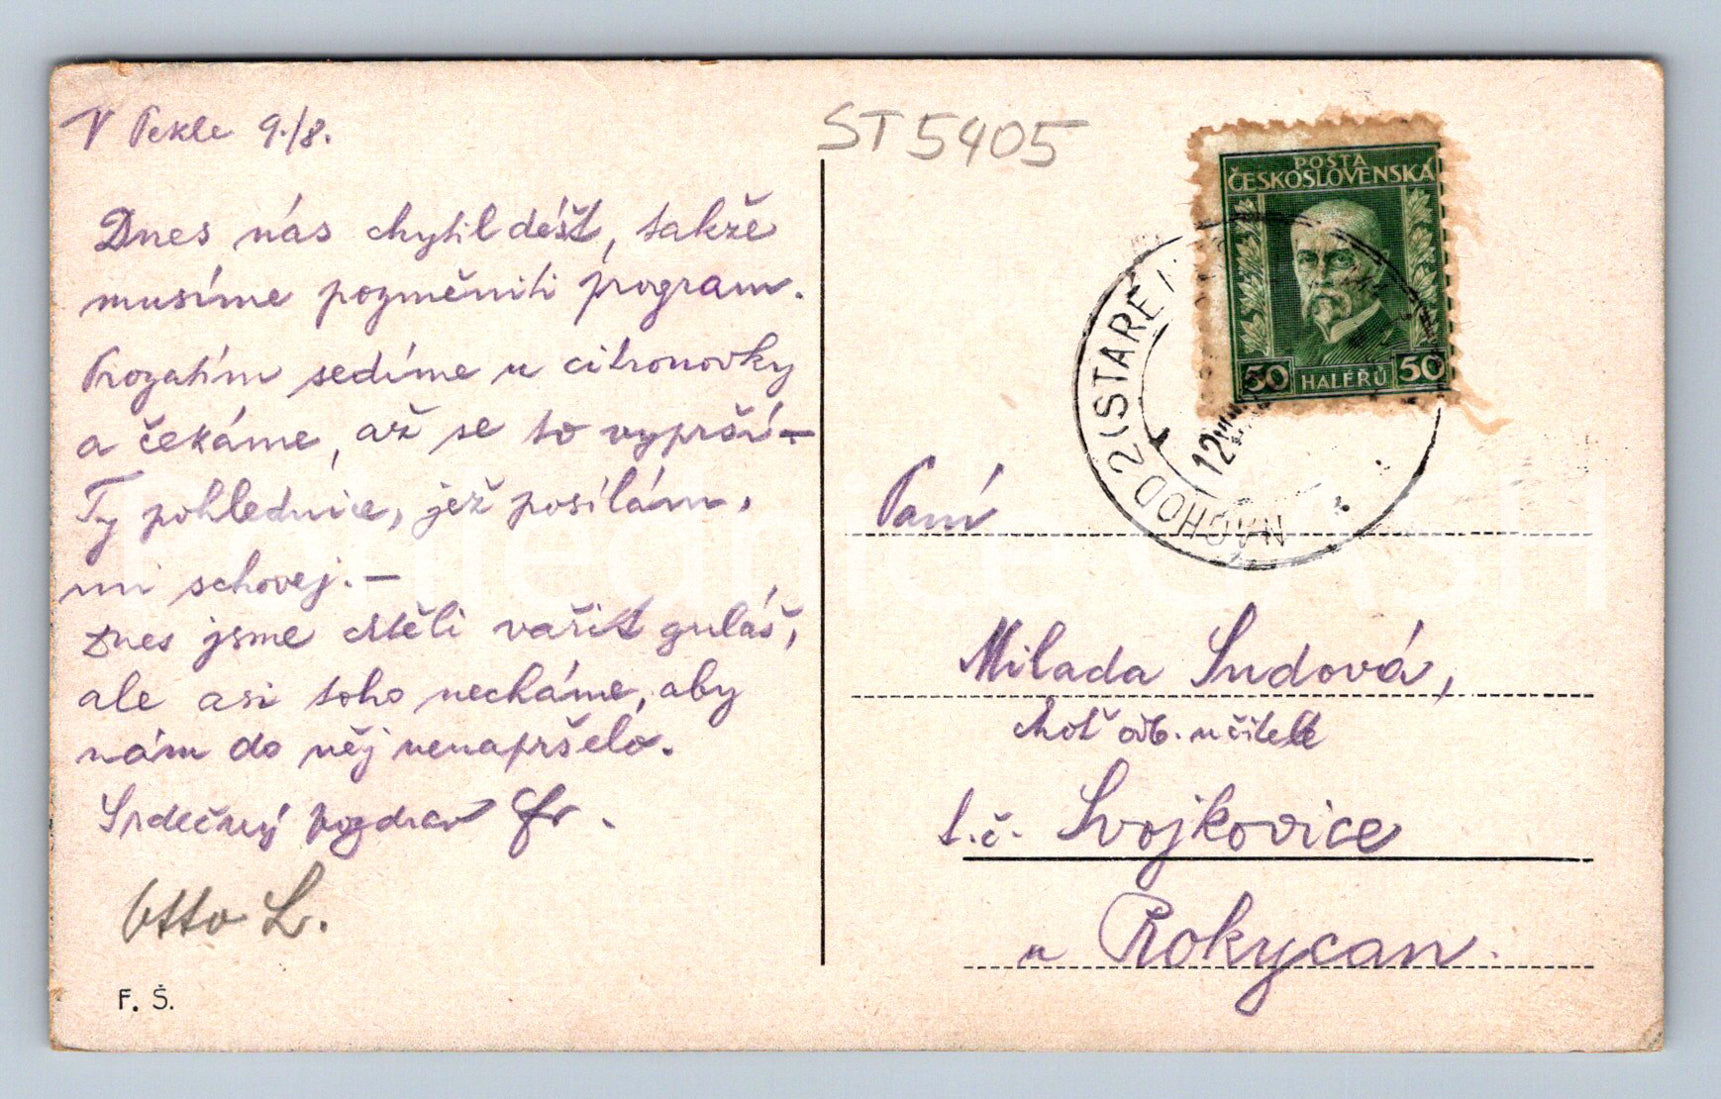 V Pekle 9./8.
Dnes nás chytil déšť, takže
musíme pozměniti program.
Prozatím sedíme u citronovky
a čekáme, až se to vyprší –
Ty pohlednice, jež posílám,
mi schovej. –
Dnes jsme chtěli vařit guláš,
ale asi toho necháme, aby
nám do něj nenapršelo.
Srdečný pozdrav Fr.
Otto L.
F. Š.
ST5405
POSTA
ČESKOSLOVENSKÁ
50 HALÉŘŮ 50
NÁCHOD 2 (STARÉ
12
Paní
Milada Sudová,
choť odb. učitele
t. č. Svojkovice
u Rokycan.